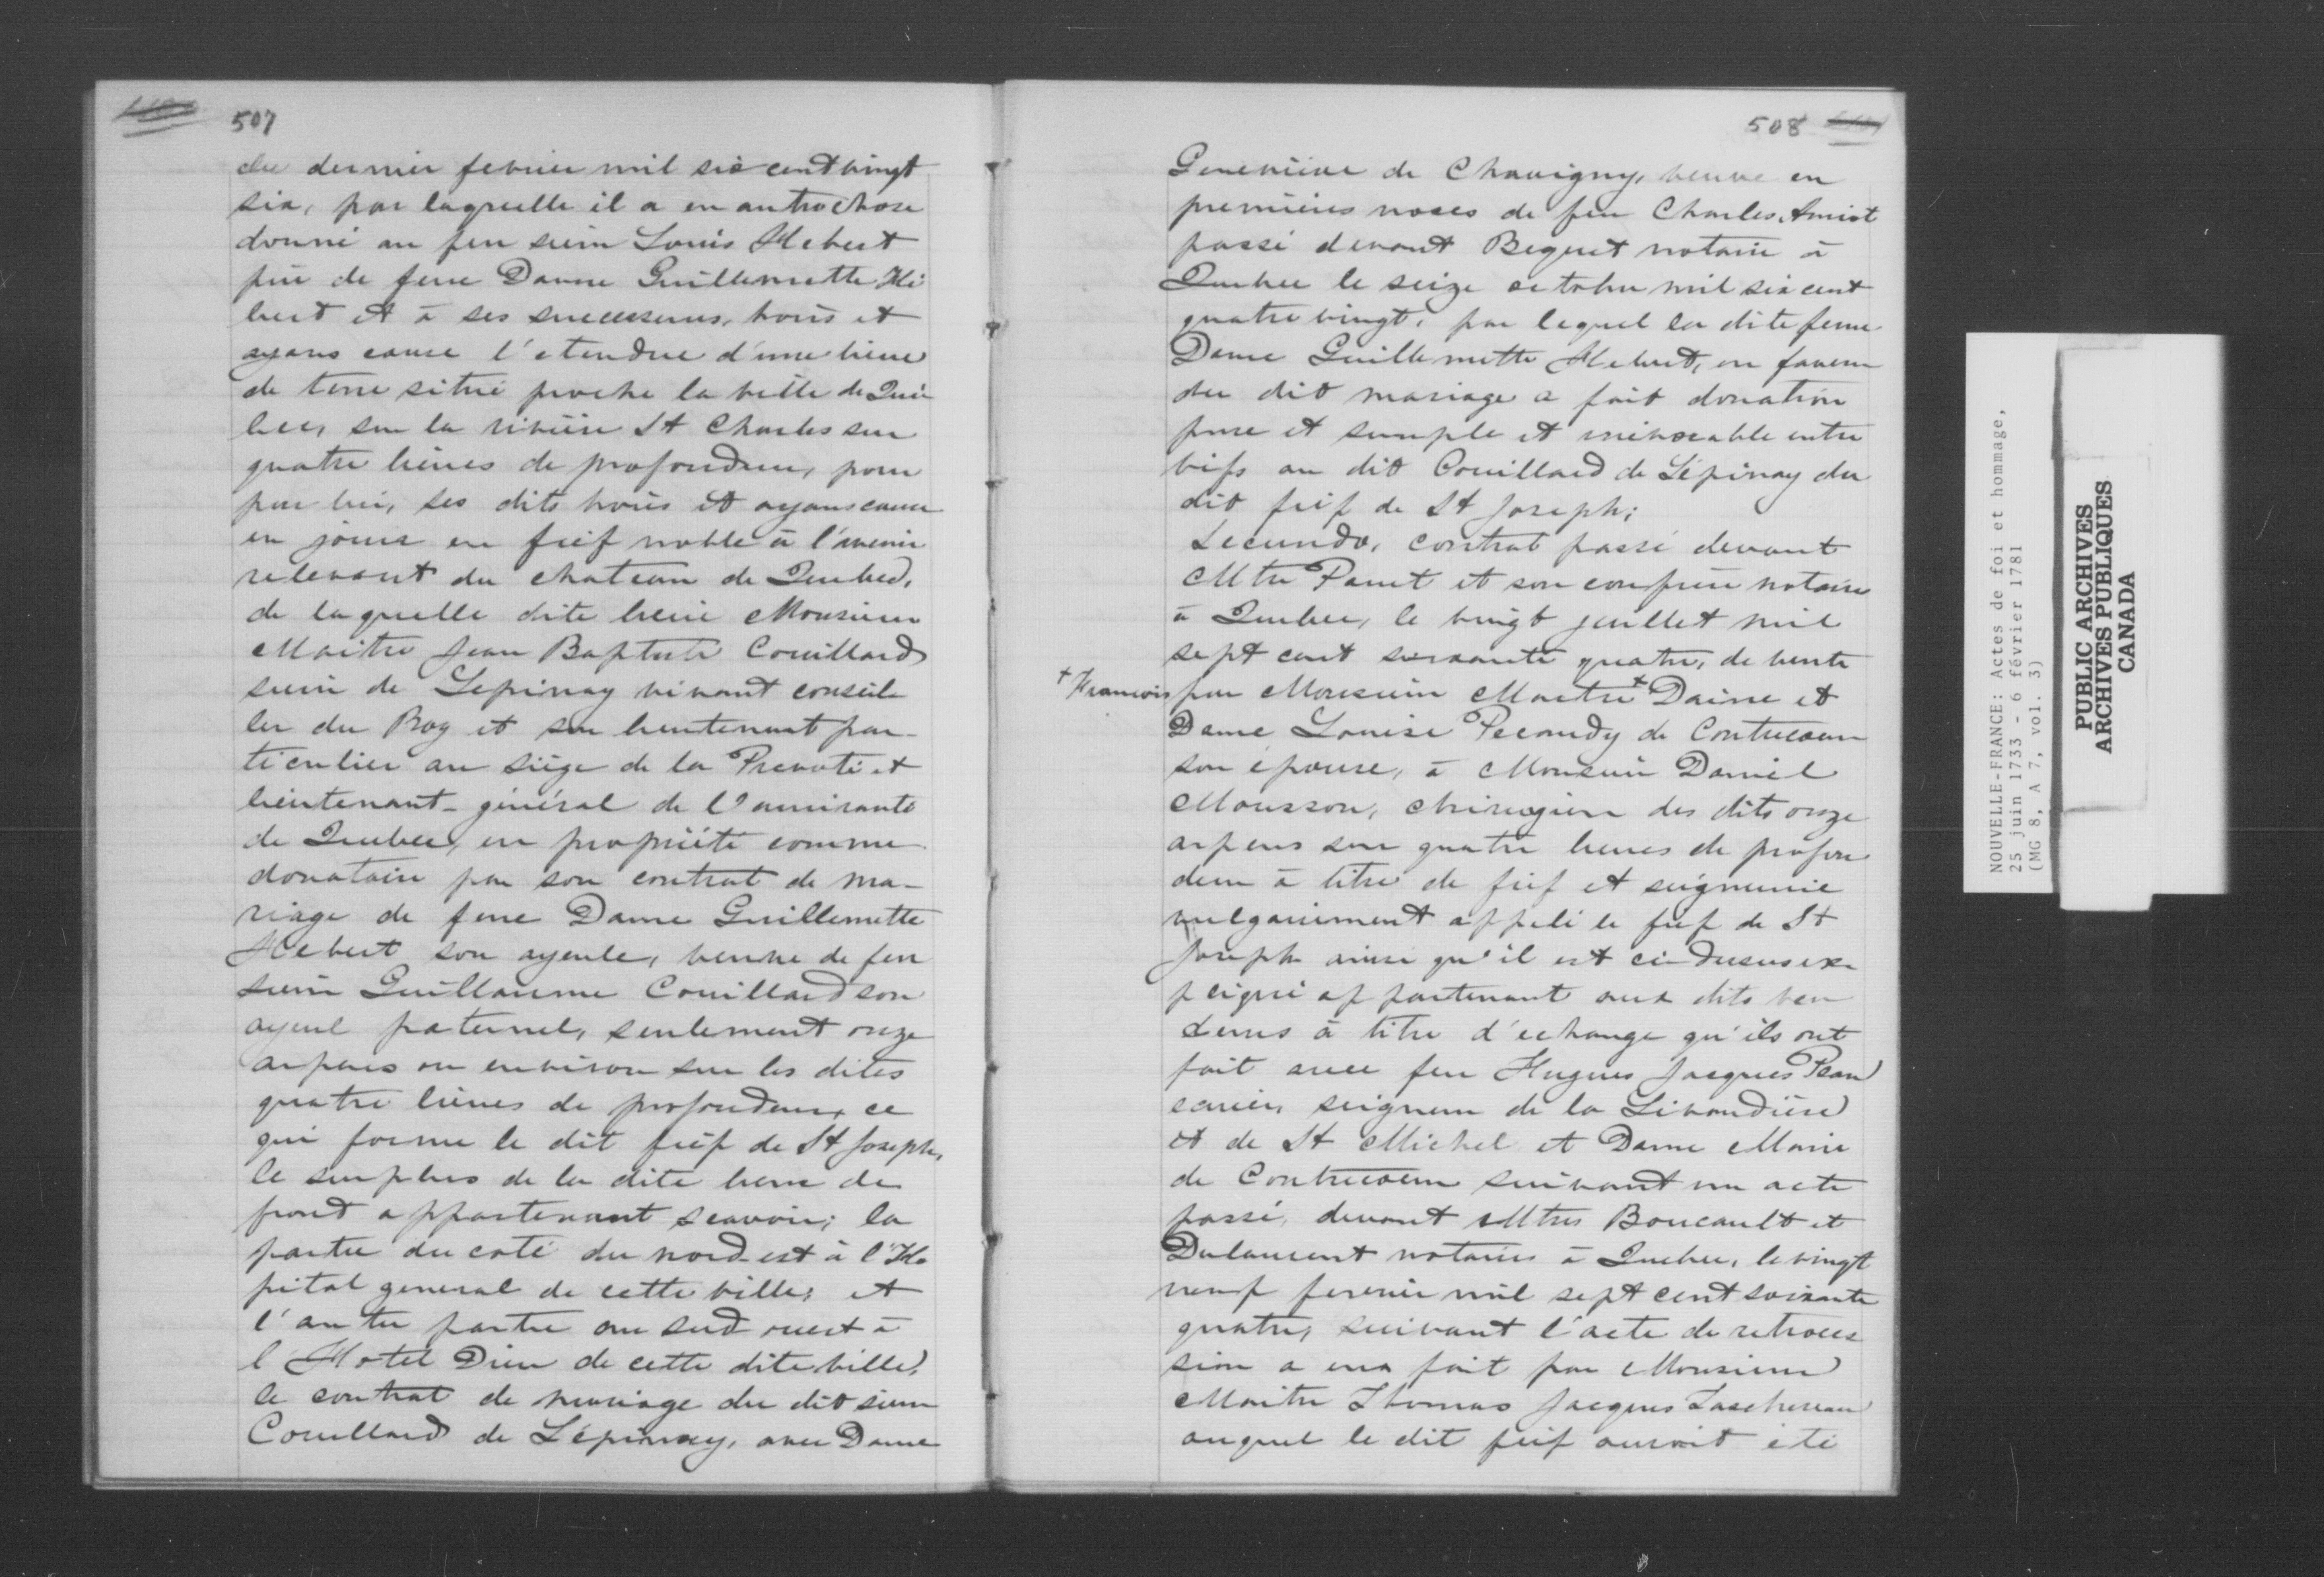 507
du dernier fevrier mil six cent vingt
six, par laquelle il a en autre chose
donné au feu sieur Louis Hebert
père de feue Dame Guillemette Hé
bert et à ses successeurs, hoirs et
ayans cause l'etendue d'une lieue
de terre située proche la ville de Qué
bec, sur la rivière St Charles sur
quatre lieues de profondeur, pour
par lui, ses dits hoirs et ayans cause
en jouir en fief noble à l'avenir
relevant du chateau de Quebec,
de laquelle dite lieue Monsieur
Maitre Jean Baptiste Couillard
sieur de Lepinay vivant conseil
ler du Roy et son lieutenant par-
ticulier au siége de la Prevoté et
lieutenant-général de l'amirauté
de Quebec, en propriété comme
donataire par son contrat de ma-
riage de feue Dame Guillemette
Hebert son ayeule, veuve de feu
sieur Guillaume Couillard son
ayeul paternel, seulement onze
arpens ou environ sur les dites
quatre lieues de profondeur, ce
qui forme le dit fief de St Joseph,
le surplus de la dite lieue de
front appartenant scavoir; la
partie du coté du nord-est à l'Ho
pital general de cette ville; et
l'autre partie au sud ouest à
l'Hotel Dieu de cette dite ville,
le contrat de mariage du dit sieur
Couillard de Lépinay, avec Dame
508
Genevieve de Chavigny, veuve en
premières noces de feu Charles Amiot
passé devant Bequet notaire à
Quebec le seize octobre mil six cent
quatre vingt, par lequel la dite feue
Dame Guillemette Hebert, en faveur
du dit mariage a fait donation
pure et simple et irrévocable entre
vifs au dit Couillard de Lépinay du
dit fief de St Joseph;
Secundo, contrat passé devant
Mtre Panet et son confrère notaires
à Quebec, le vingt juillet mil
sept cent soixante quatre, de vente
+ Francois par Monsieur Maitre + Daine et
Dame Louise Pecaudy de Contrecoeur
son épouse, à Monsieur Daniel
Mousson, chirurgien des dits onze
arpens sur quatre lieues de profon
deur à titre de fief et seigneurie
vulgairement appelé le fief de St
Joseph ainsi qu'il est ci-dessus ex
pliqué appartenant aux dits ven
deurs à titre d'echange qu'ils ont
fait avec feu Hugues Jacques Pean
ecuier, seigneur de la Livaudière
et de St Michel et Dame Marie
de Contrecoeur suivant un acte
passé, devant Mtres Boucault et
Dulaurent notaires à Quebec, le vingt
neuf fevrier mil sept cent soixante
quatre, suivant l'acte de retroces
sion a eux fait par Monsieur
Maitre Thomas Jacques Taschereau
auquel le dit fief auroit été
NOUVELLE-FRANCE: Actes de foi et hommage,
25 juin 1733 - 6 février 1781
(MG 8, A 7, vol. 3)
PUBLIC ARCHIVES
ARCHIVES PUBLIQUES
CANADA